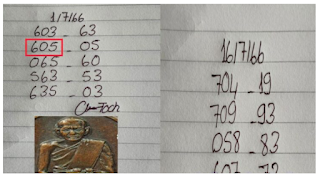 1/7/66
603 - 63
605 - 05
065 - 60
563 - 53
635 - 03
16/7/66
704 - 19
709 - 93
058 - 83